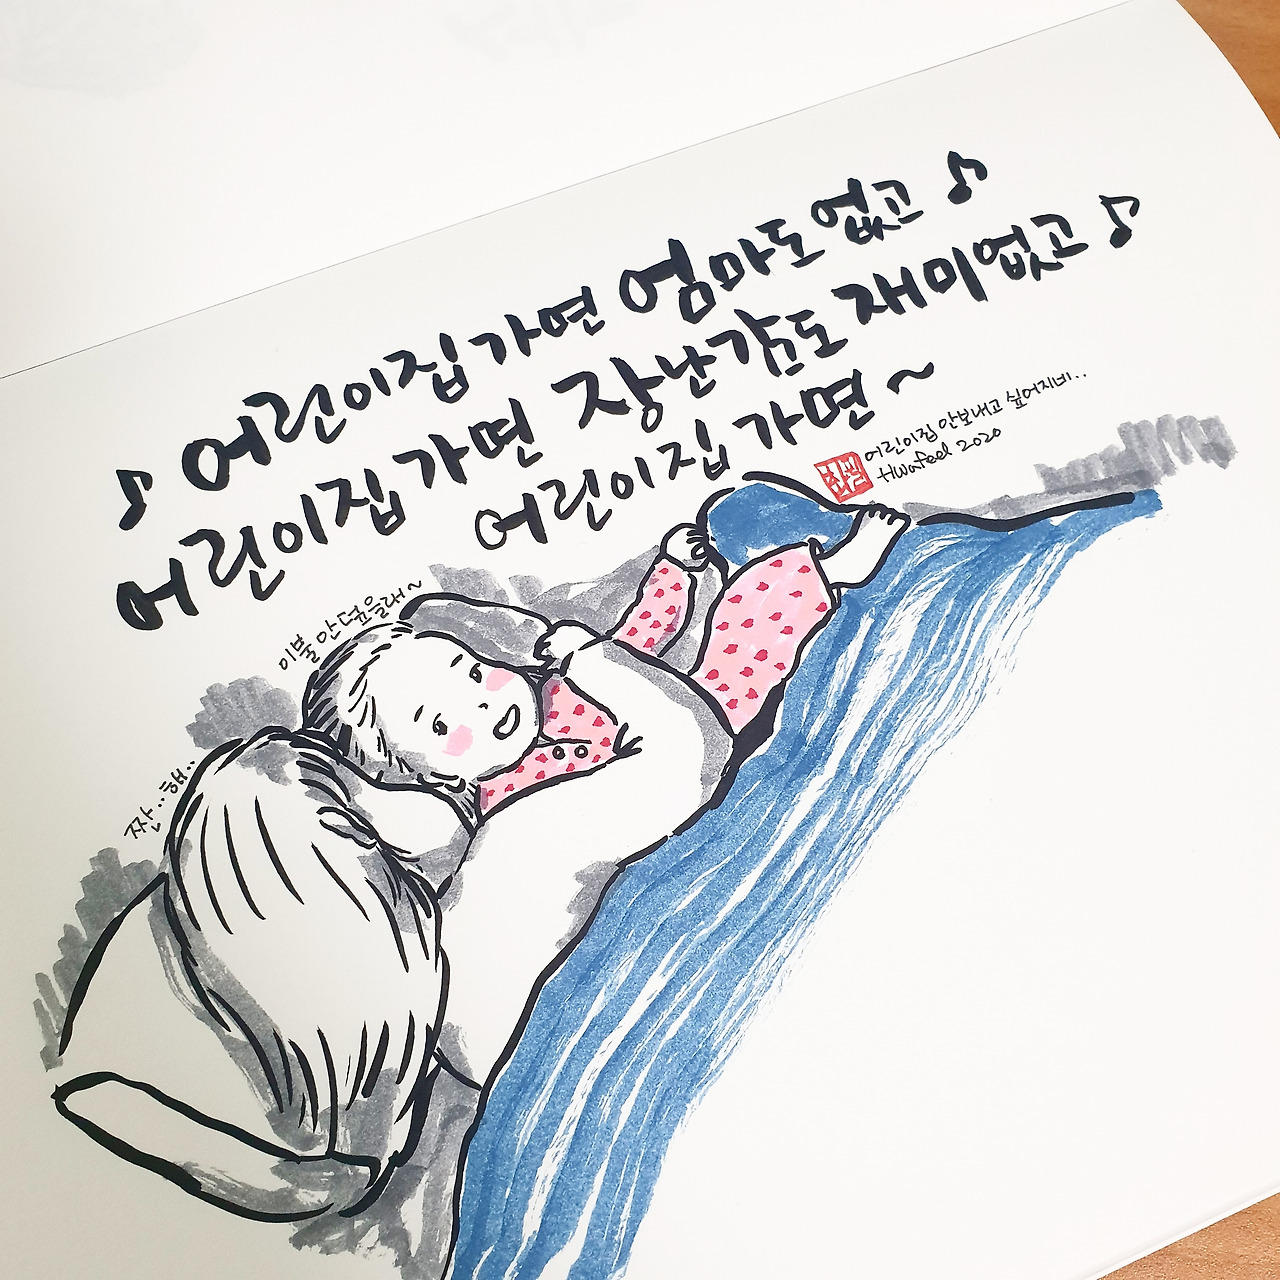 ♪ 어린이집 가면 엄마도 없고 ♪
어린이집 가면 장난감도 재미없고 ♪
어린이집 가면~
어린이집 안보내고 싶어지네..
Hwafeel 2020
이불 안 덮을래~
짠..해..